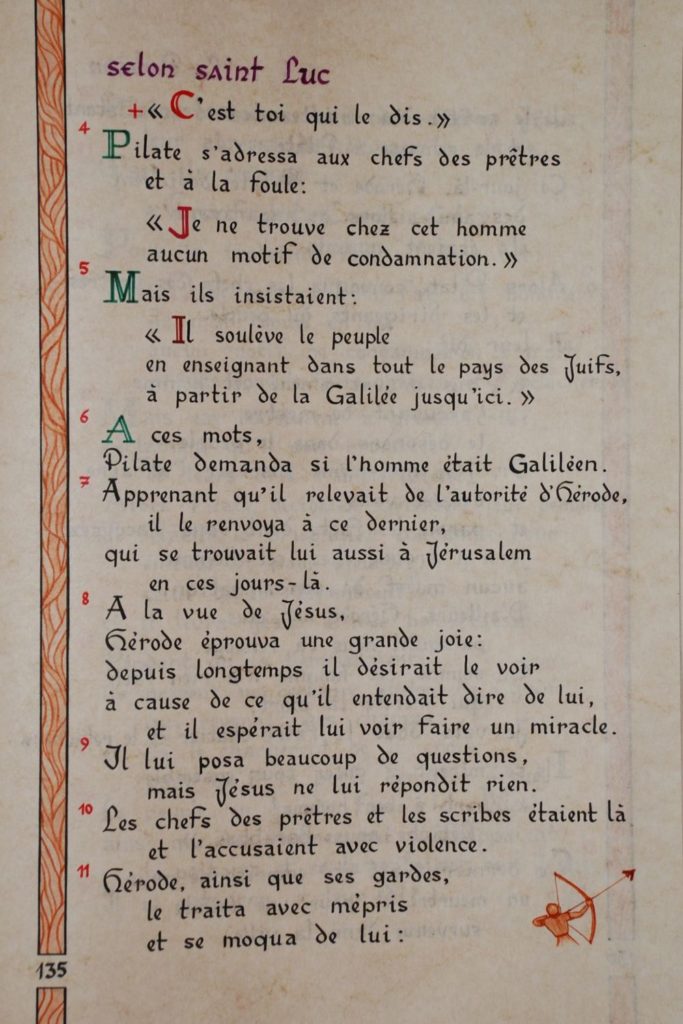 selon saint Luc
+« C'est toi qui le dis.»
4 Pilate s'adressa aux chefs des prêtres
et à la foule:
« Je ne trouve chez cet homme
aucun motif de condamnation. »
5 Mais ils insistaient:
« Il soulève le peuple
en enseignant dans tout le pays des Juifs,
à partir de la Galilée jusqu'ici. »
6 A ces mots,
Pilate demanda si l'homme était Galiléen.
7 Apprenant qu'il relevait de l'autorité d'Hérode,
il le renvoya à ce dernier,
qui se trouvait lui aussi à Jérusalem
en ces jours-là.
8 A la vue de Jésus,
Hérode éprouva une grande joie:
depuis longtemps il désirait le voir
à cause de ce qu'il entendait dire de lui,
et il espérait lui voir faire un miracle.
9 Il lui posa beaucoup de questions,
mais Jésus ne lui répondit rien.
10 Les chefs des prêtres et les scribes étaient là
et l'accusaient avec violence.
11 Hérode, ainsi que ses gardes,
le traita avec mépris
et se moqua de lui:
135